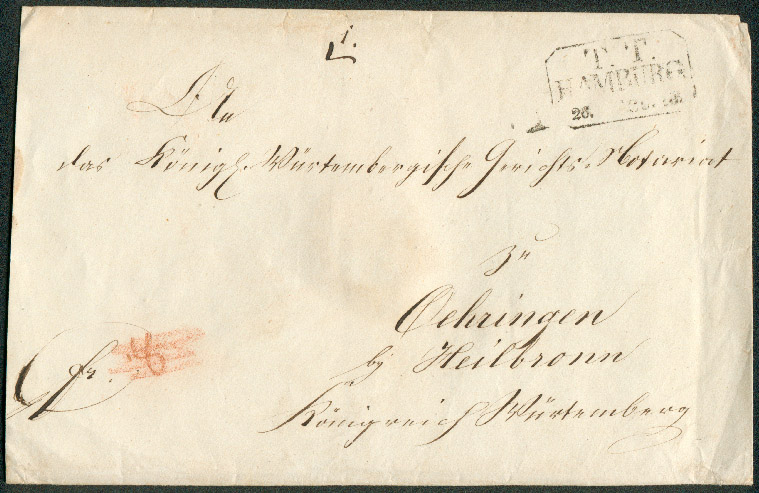 1.
T. T.
HAMBURG
26.
An
das Königl. Würtembergische Gerichts-Notariat
zu
Oehringen
by Heilbronn
Königreich Würtemberg
fr.